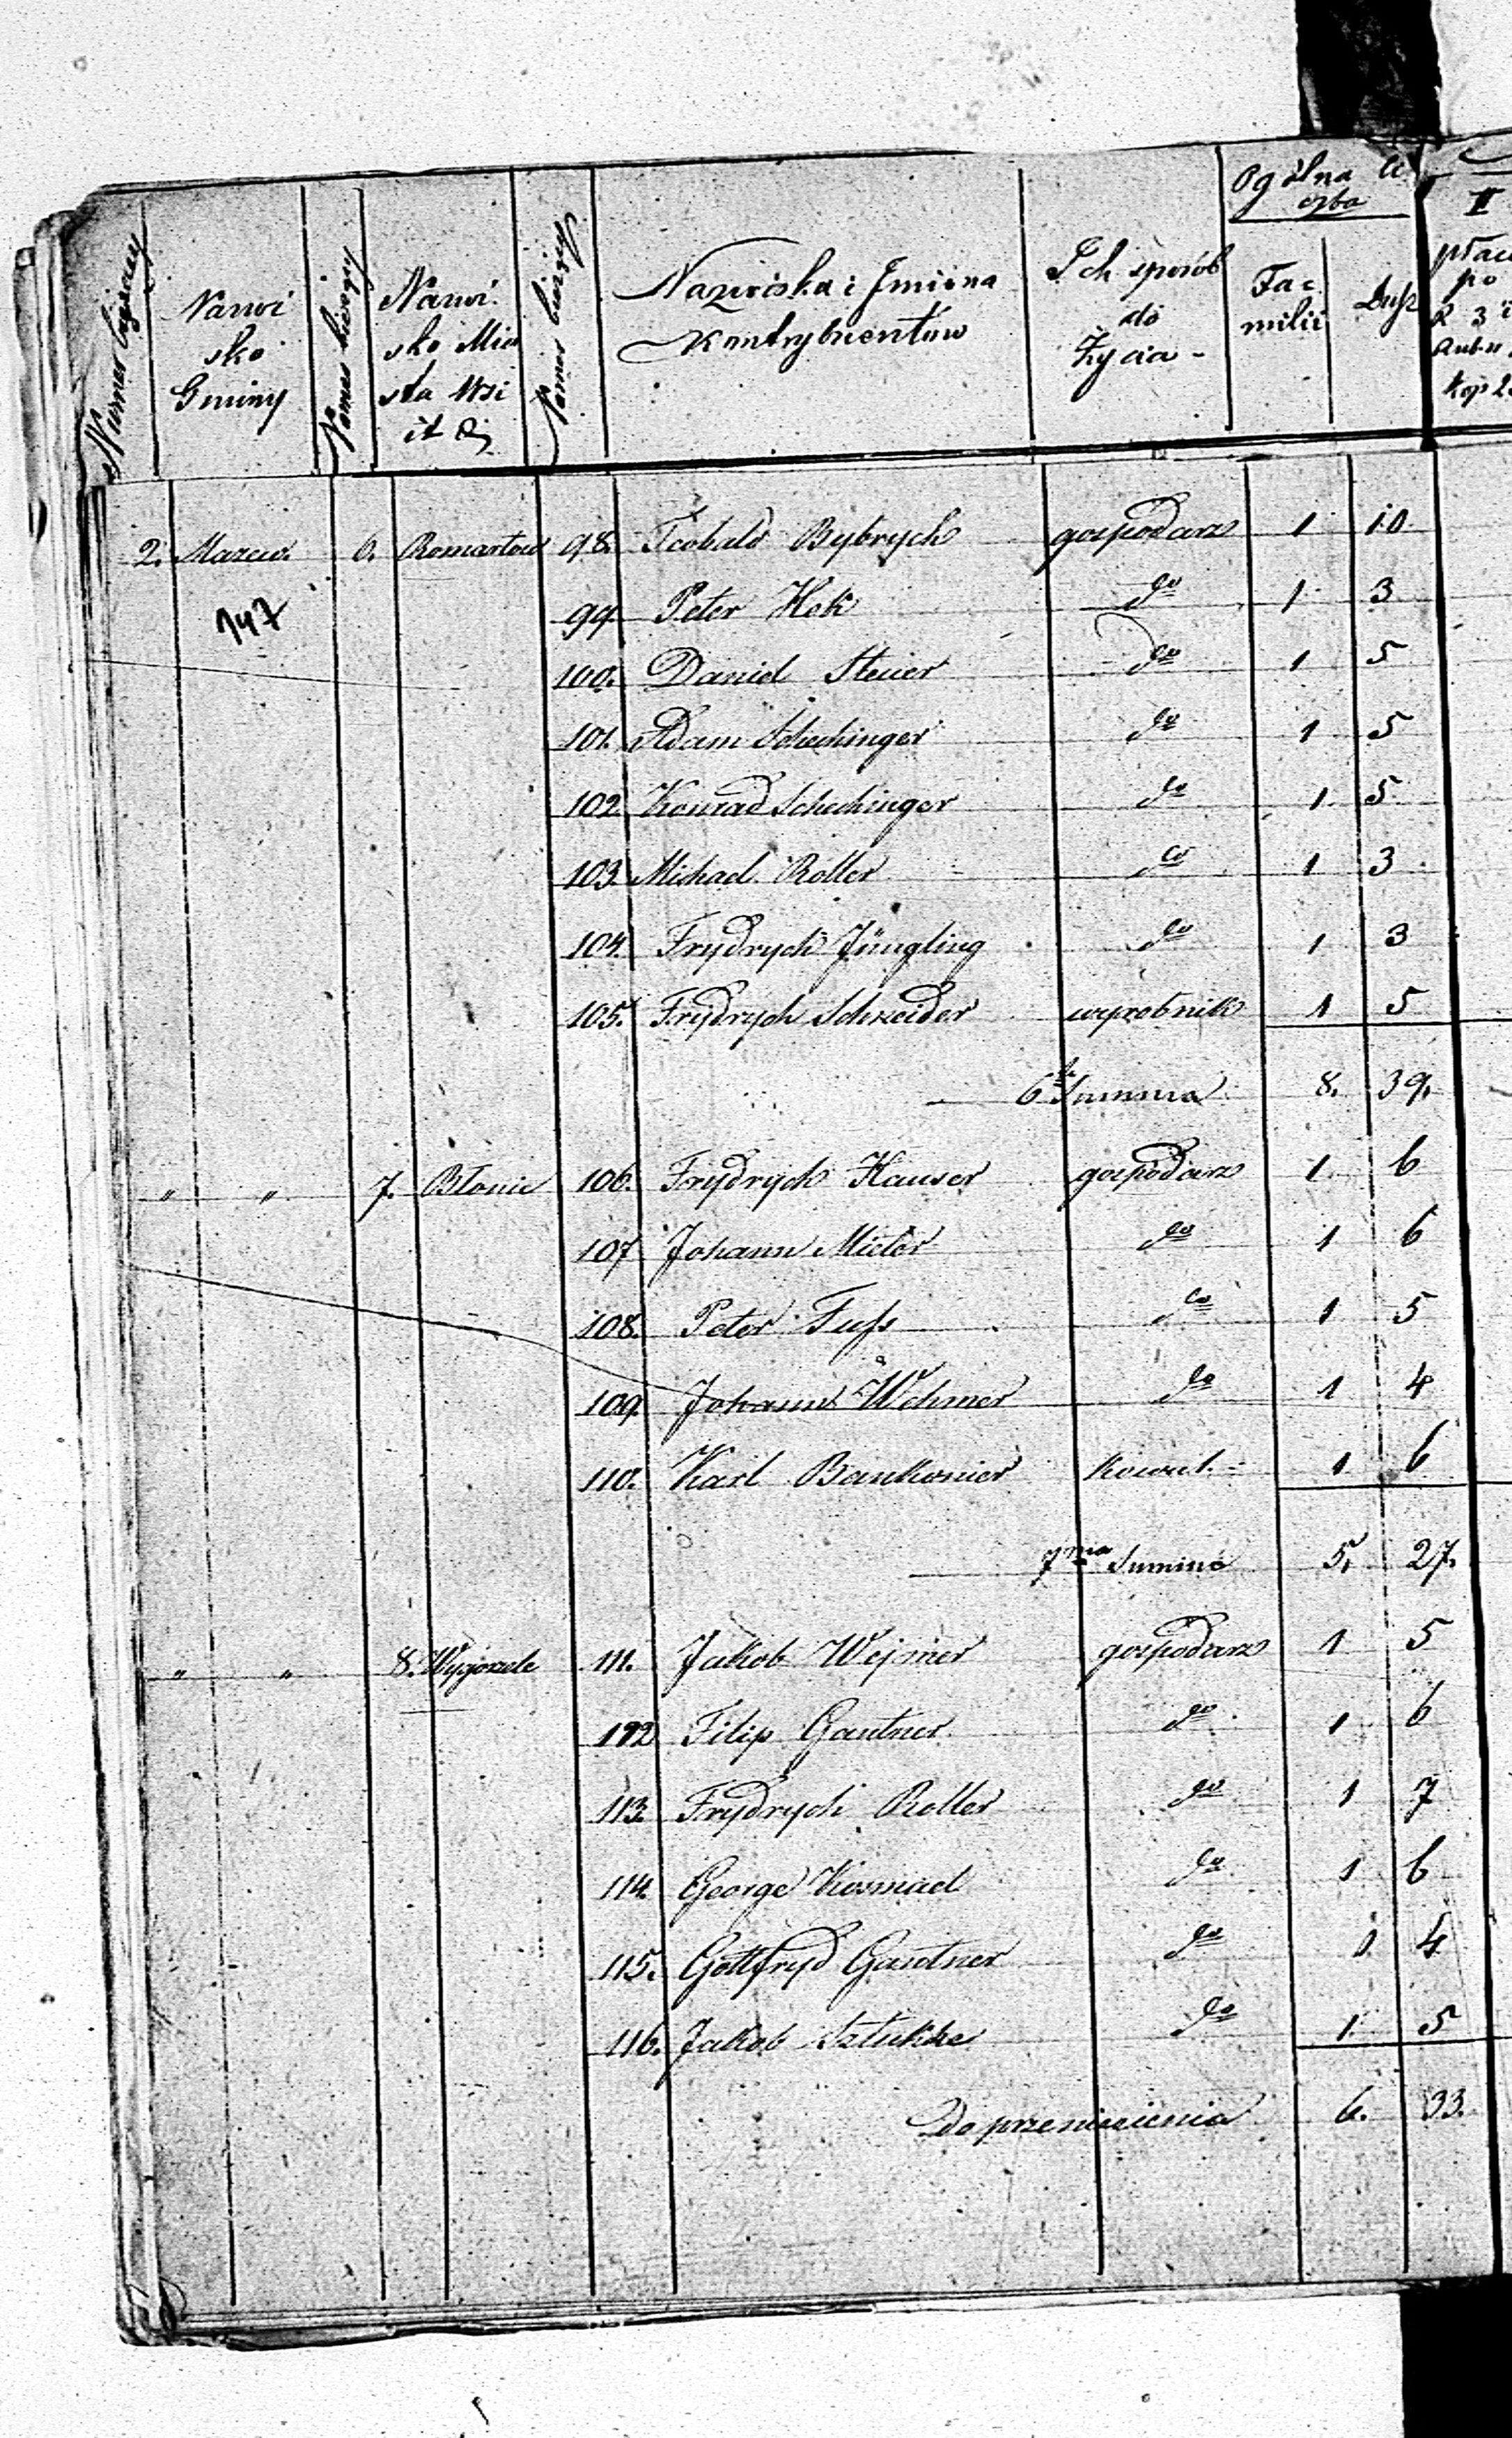 Numer bieżący
Nazwi
sko
Gminy
Numer bieżący
Nazwi
sko Mia
sta Wsi
it d
Numer bieżący
Nazwiska i Imiona
Kontrybuentów
Ich sposób
do
Życia -
Ogólna li
czba
Fa
milii
Dusz
II
płac
po
R 3 i
Kop 2
2. Mazew. 6. Romartow 98. Teobald Bybrych gospodarz 1 10
147
99. Peter Hek do 1 3
100. Daniel Steier do 1 5
101. Adam Schechinger do 1 5
102 Konrad Schechinger do 1 5
103. Michael Roller do 1 3
104. Frydrych Jüngling do 1 3
105. Frydrych Schneider wyrobnik 1 5
6ta Summa 8. 39.
" " 7. Błonie 106. Frydrych Hauser gospodarz 1 6
107 Johann Mieler do 1 6
108. Peter Fuſs do 1 5
109. Johann Wehmer do 1 4
110. Karl Bankonier kowal 1 6
7ma Summa 5. 27.
" " 8. Wygorzele 111. Jakob Wejmer gospodarz 1 5
112 Filip Gautner do 1 6
113. Frydrych Roller do 1 7
114. George Kosmael do 1 6
115. Gottfryd Gautner do 1 4
116. Jakob Sztukke do 1 5
Do przeniesienia 6. 33.